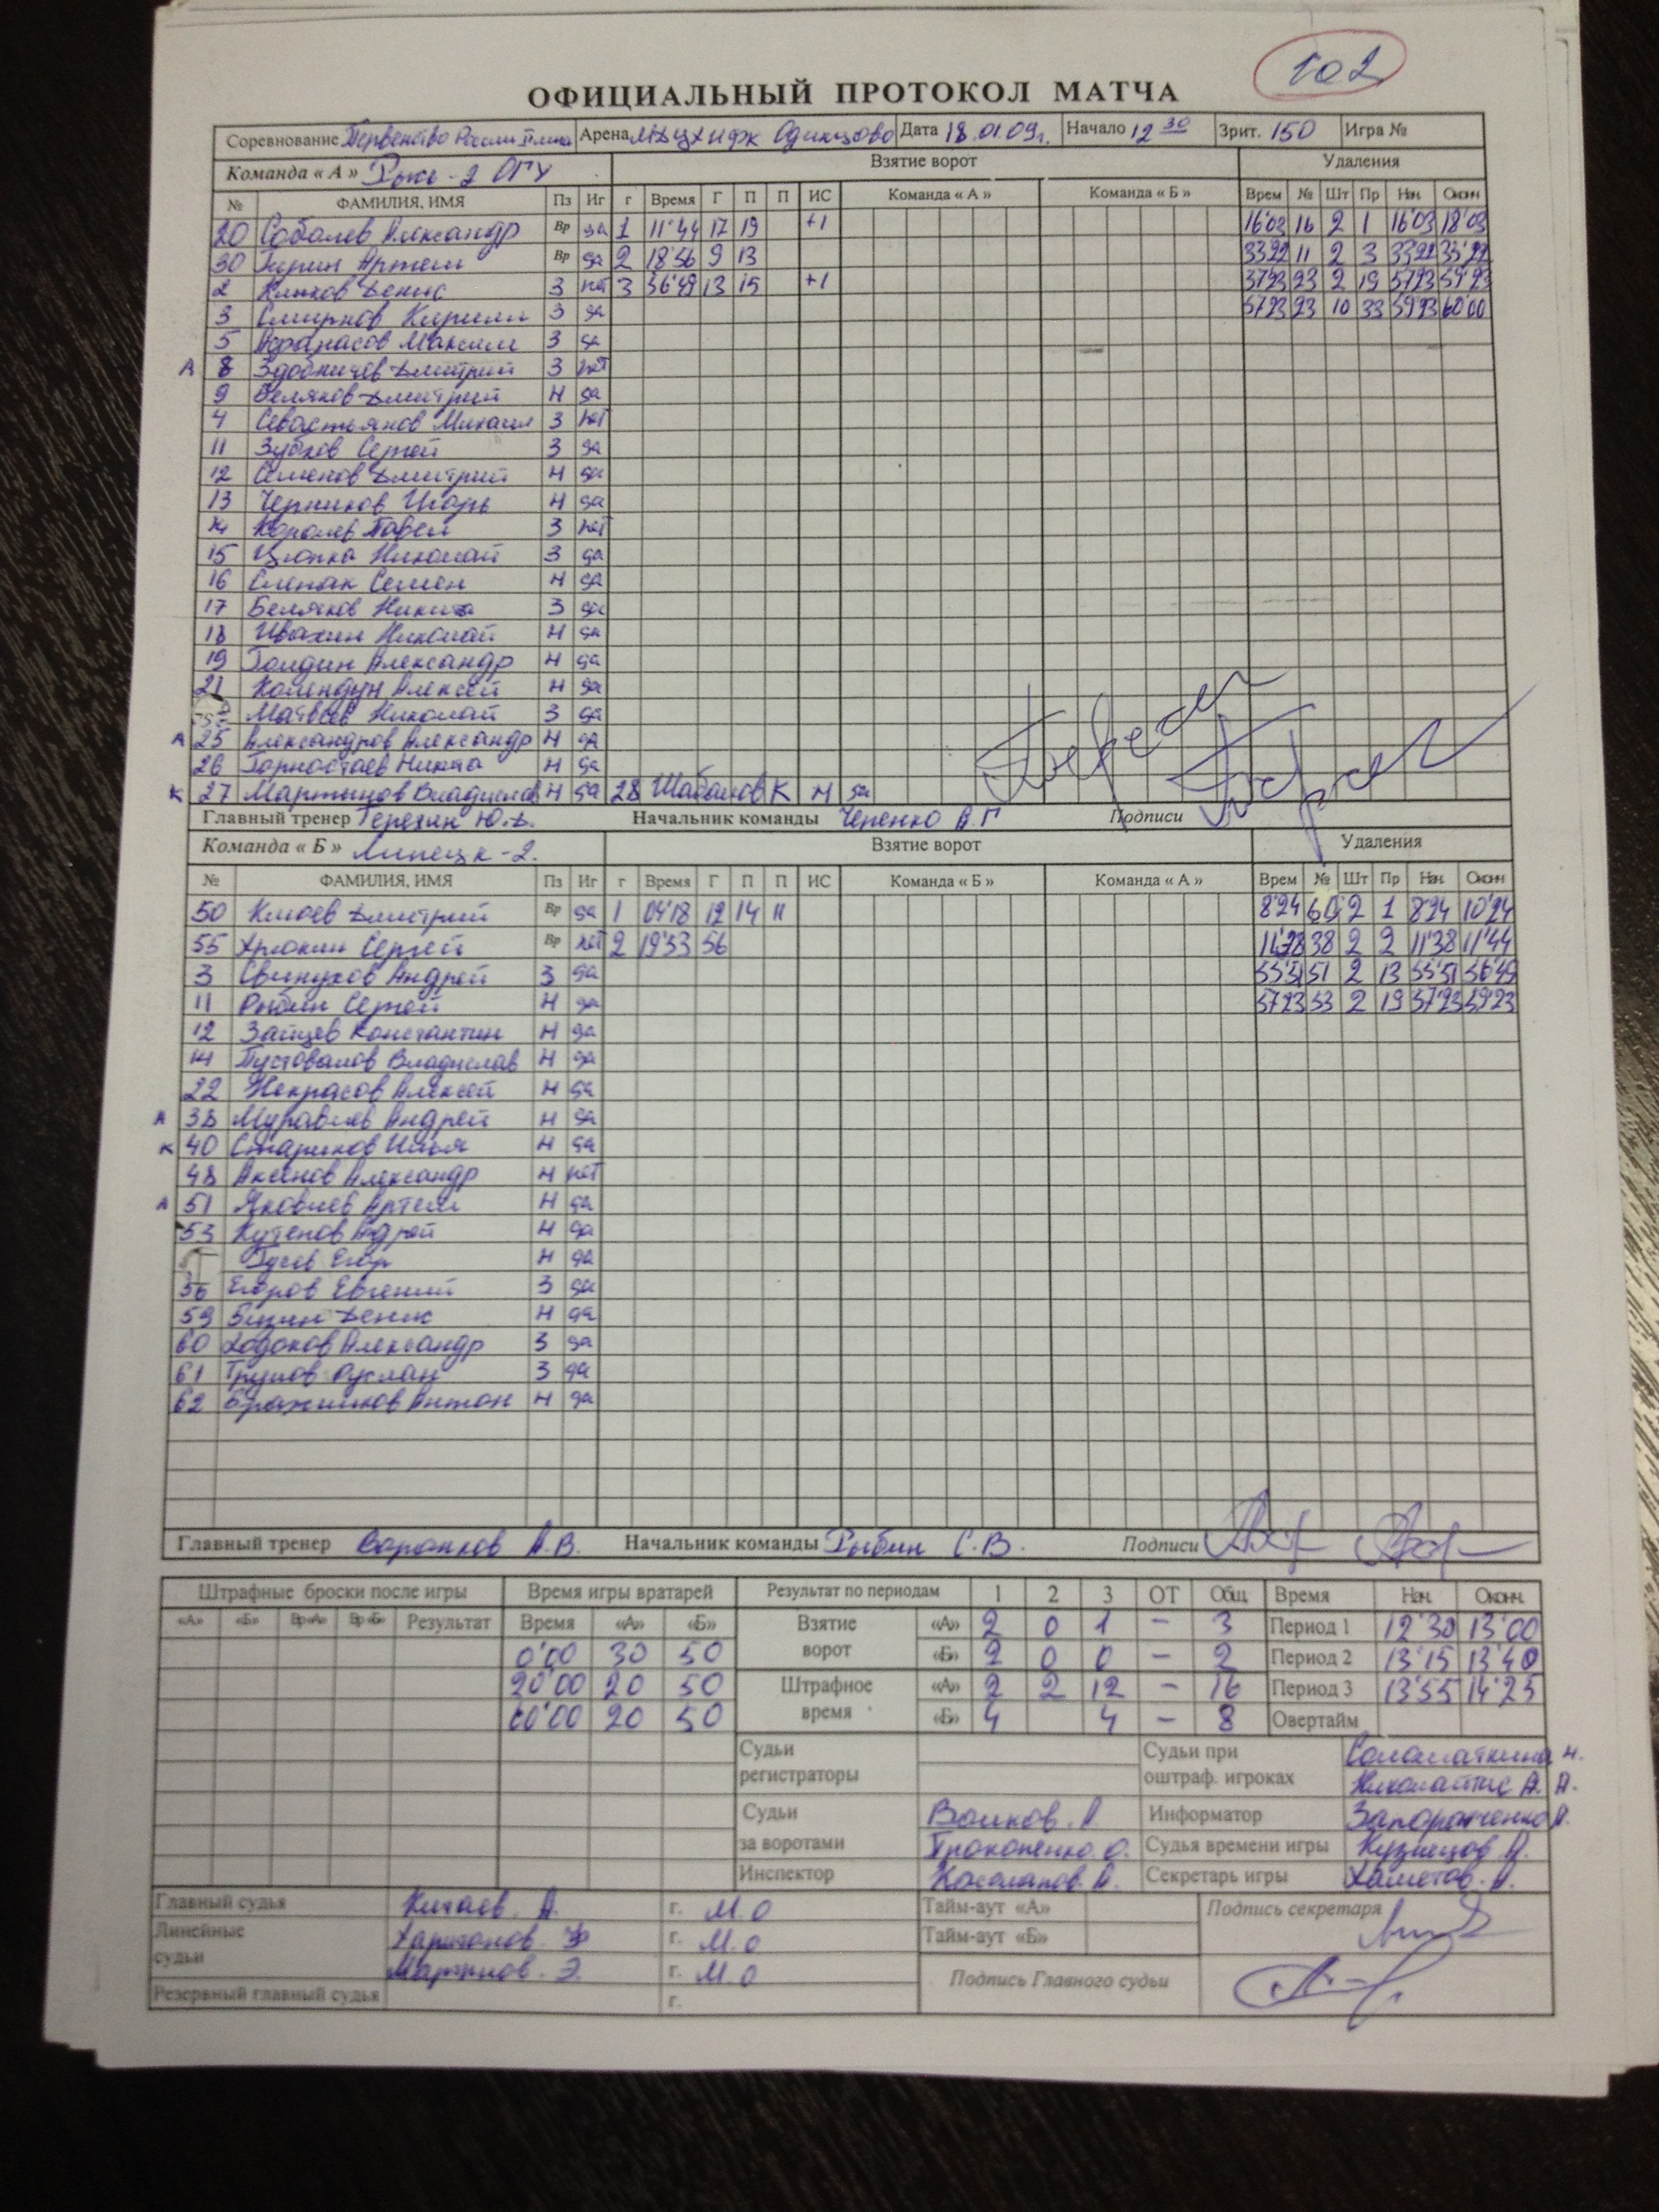 102
ОФИЦИАЛЬНЫЙ ПРОТОКОЛ МАТЧА
Соревнование Первенство России Арена Одинцово Дата 18.01.09г. Начало 12 30 Зрит. 150 Игра №
Команда « А » -2 ОГУ Взятие ворот Удаления
№ ФАМИЛИЯ, ИМЯ Пз Иг г Время Г П П ИС Команда « А » Команда « Б » Врем № Шт Пр Нач. Оконч.
20 Соболев Александр Вр да 1 11'44 17 19 +1 16'03 16 2 1 16'03 18'03
30 Артем Вр да 2 18'56 9 13 33'22 11 2 3 33'22 35'22
2 Клыков Денис З нет 3 56'49 13 15 +1 57'23 23 2 19 57'23 59'23
3 Смирнов Кирилл З да 57'23 23 10 33 59'23 60'00
5 Афанасов Максим З да
А 8 Здобничев Дмитрий З нет
9 Беляков Дмитрий Н да
4 Севастьянов Михаил З нет
11 Зубков Сергей З да
12 Семенов Дмитрий Н да
13 Черников Игорь Н да
14 Королев Павел З нет
15 Цюпка Николай З да
16 Слепак Семен Н да
17 Беляков Никита З да
18 Ивахин Николай Н да
19 Голдин Александр Н да
21 Алексей Н да
Матвеев Николай З да
А 25 Александров Александр Н да
26 Горностаев Никита Н да
К 27 Мартынов Владислав Н да 28 Шабанов К Н да
Главный тренер Терехин Ю.Д. Начальник команды Черенко В.Г Подписи
Команда « Б » Липецк-2. Взятие ворот Удаления
№ ФАМИЛИЯ, ИМЯ Пз Иг г Время Г П П ИС Команда « Б » Команда « А » Врем № Шт Пр Нач. Оконч.
50 Клоев Дмитрий Вр да 1 04'18 12 14 11 8'24 60 2 1 8'24 10'24
55 Хрюкин Сергей Вр нет 2 19'53 56 11'38 38 2 2 11'38 11'44
3 Свинухов Андрей З да 55'51 51 2 13 55'51 56'49
11 Рыбин Сергей Н да 57'23 53 2 19 57'23 59'23
12 Зайцев Константин Н да
14 Пустовалов Владислав Н да
22 Некрасов Алексей Н да
А 38 Муравлев Андрей Н да
К 40 Стариков Илья Н да
48 Аксенов Александр Н нет
А 51 Яковлев Артем Н да
53 Кутепов Андрей Н да
Гусев Егор Н да
56 Егоров Евгений З да
59 Денис Н да
60 Ходоков Александр З да
61 Трунов Руслан З да
62 Бражников Антон Н да
Главный тренер Воронков А.В. Начальник команды Рыбин С.В. Подписи
Штрафные броски после игры Время игры вратарей Результат по периодам 1 2 3 ОТ Общ Время Нач. Оконч.
«А» «Б» Вр«А» Вр«Б» Результат Время «А» «Б» Взятие ворот «А» 2 0 1 – 3 Период 1 12'30 13'00
0'00 30 50 «Б» 2 0 0 – 2 Период 2 13'15 13'40
20'00 20 50 Штрафное время «А» 2 2 12 – 16 Период 3 13'55 14'25
60'00 20 50 «Б» 4 4 – 8 Овертайм
Судьи регистраторы Судьи при оштраф. игроках Соломаткина Н.
Николайтис А. А.
Судьи за воротами Волков. А Информатор Запорожченко А.
Прокопенко. О. Судья времени игры Кузнецов. А.
Инспектор Косолапов. А. Секретарь игры Хаметов. А.
Главный судья Китаев. А. г. М.О Тайм-аут «А» Подпись секретаря
Линейные судьи Харитонов. Ф г. М.О Тайм-аут «Б»
Мартынов. Э. г. М.О Подпись Главного судьи
Резервный главный судья г.